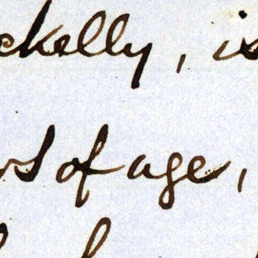 ckelly, is
rs of age,